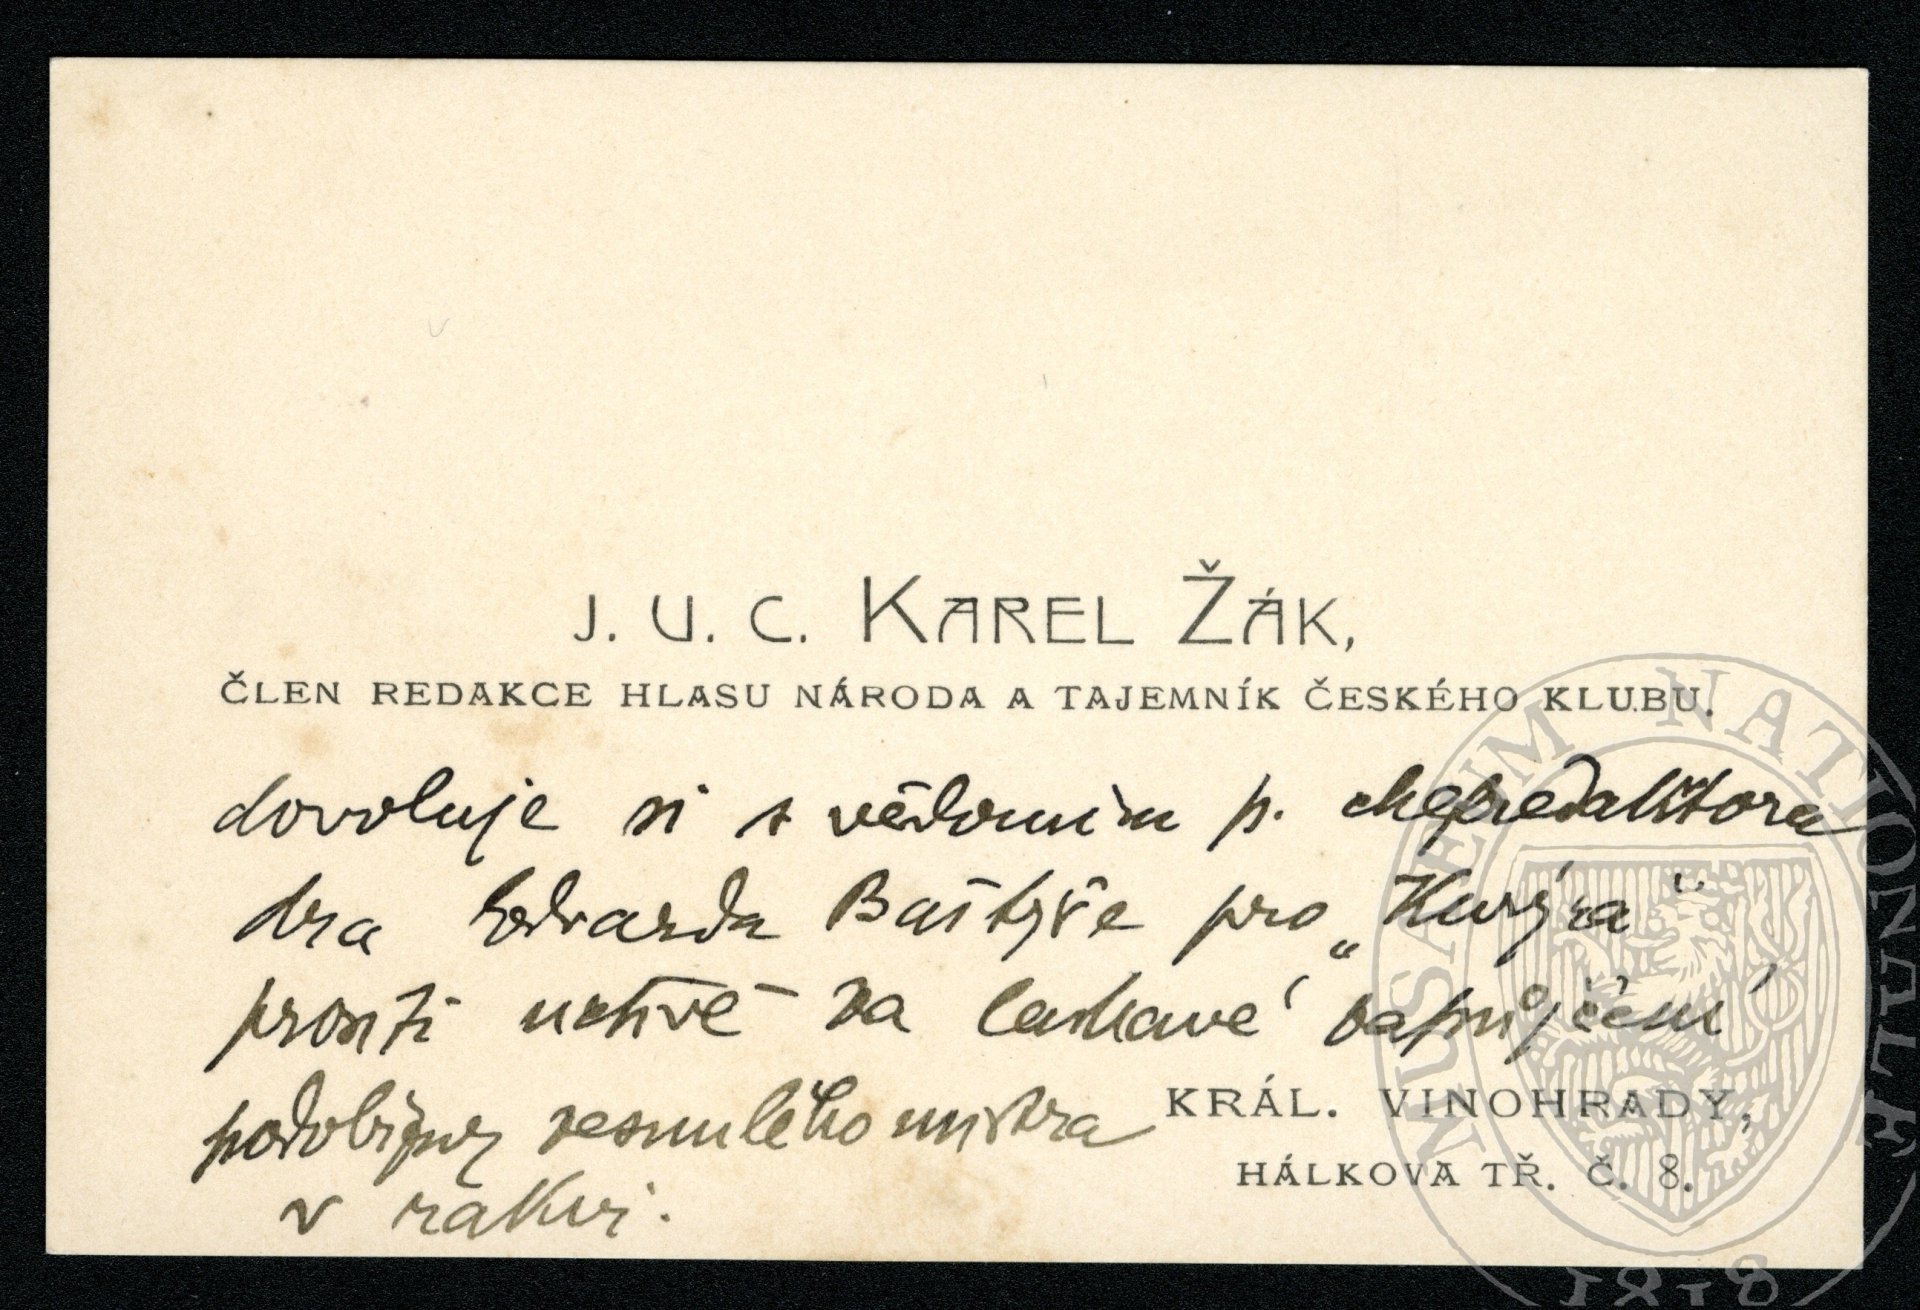 J. U. C. KAREL ŽÁK,
ČLEN REDAKCE HLASU NÁRODA A TAJEMNÍK ČESKÉHO KLUBU.
dovoluje si s vědomím p. chefredaktora
dra Edvarda Baštýře pro „Kurýra“
prositi uctivě za laskavé zapůjčení
podobizny zesnulého mistra
v rakvi.
KRÁL. VINOHRADY,
HÁLKOVA TŘ. Č. 8.
MUSAEUM NATIONALE
1818